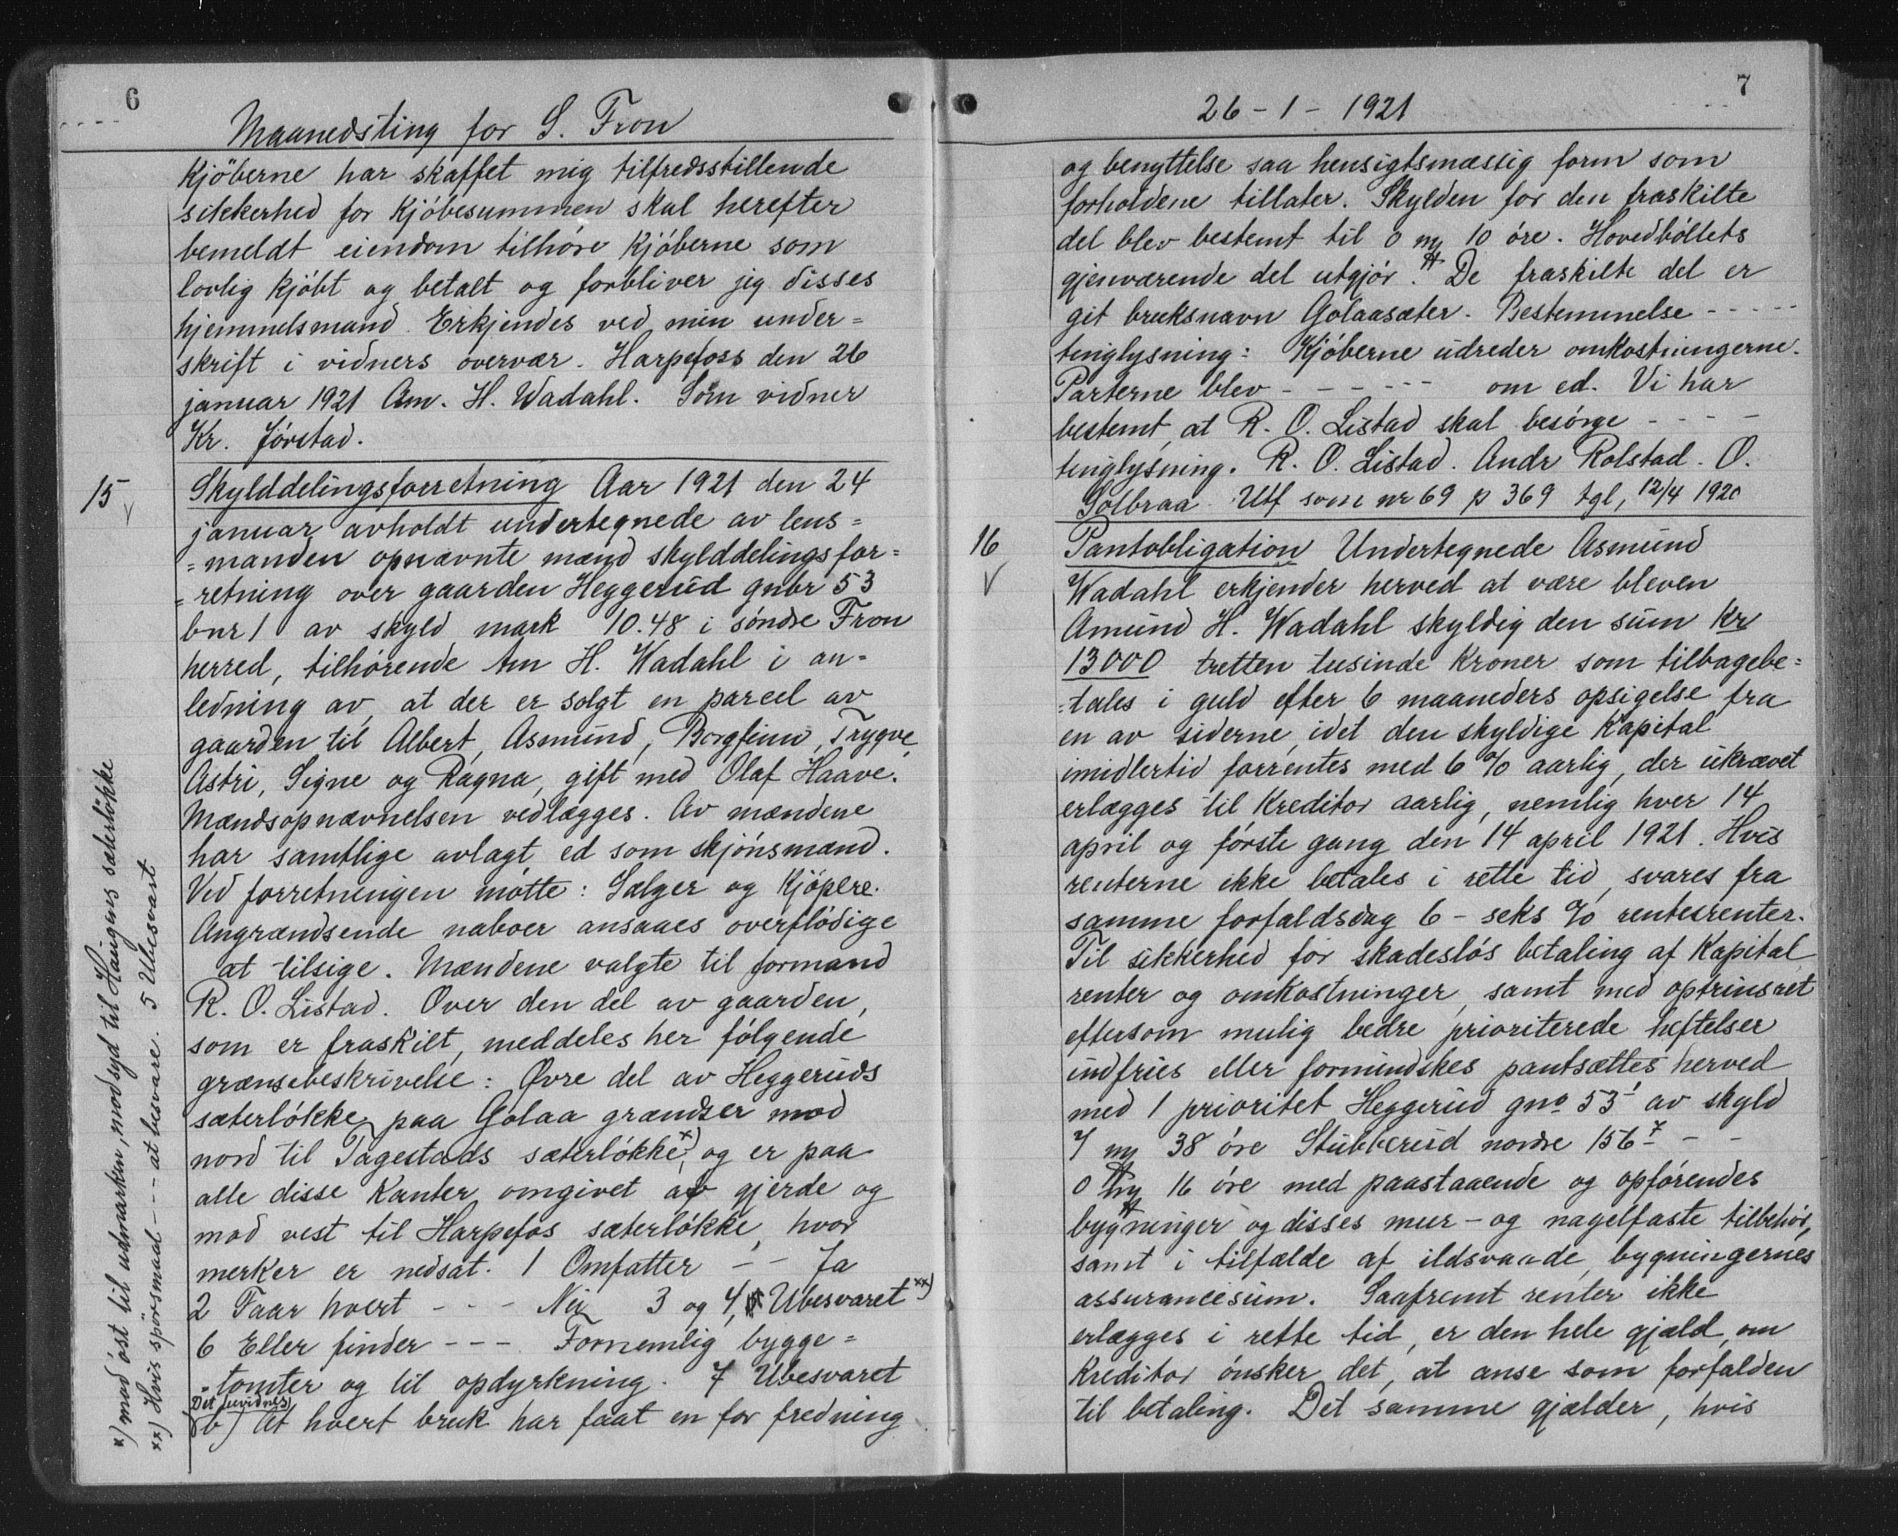 6
Maanedsting for S. Fron
Kjöberne har skaffet mig tilfredsstillende
sikkerhed for Kjöbesummen skal herefter
bemeldt eiendom tilhöre Kjöberne som
lovlig kjöbt og betalt og forbliver jeg disses
hjemmelsmand. Erkjendes ved min under=
skrift i vidners overvær. Harpefoss den 26
januar 1921 Am. H. Wadahl. Som vidner
Kr. Jörstad.
15
Skylddelingsforretning Aar 1921 den 24
januar avholdt undertegnede av lens=
=manden opnævnte mænd skylddelingsfor=
=retning over gaarden Heggerud gnbr 53
bnr 1 av skyld mark 10.48 i söndre Fron
herred, tilhörende Am H. Wadahl i an=
ledning av, at der er solgt en parcel av
gaarden til Albert, Asmund, Borgfinn, Trygve,
Astri, Signe og Ragna, gift med Olaf Haave.
Mændsopnævnelsen vedlægges. Av mændene
har samtlige avlagt ed som skjönsmænd.
Ved forretningen mötte: Sælger og Kjöpere.
Angrændsende naboer ansaaes overflödige
at tilsige. Mændene valgte til formand
R. O. Listad. Over den del av gaarden,
som er fraskilt, meddeles her fölgende
grænsebeskrivelse: Øvre del av Heggeruds
sæterlökke paa Golaa grændser mod
nord til Tagestads sæterlökke,x) og er paa
alle disse Kanter omgivet av gjerde og
mod vest til Harpefos sæterlökke, hvor
merker er nedsat. 1 Omfatter - - Ja
2 Faar hvert - - - Nei 3 og 4, Ubesvaret xx)
6 Eller finder - - - Fornemlig bygge=
=tomter og til opdyrkning. 7 Ubesvaret
(Det bevidnes)
b) At hvert bruk har faat en for fredning
x) mod öst til udmarken, mod syd til Haugens sæterlökke
xx) Hvis spörsmaal - - - at besvare. 5 Ubesvart
26-1-1921
7
og benyttelse saa hensigtsmæssig form som
forholdene tillater. Skylden for den fraskilte
del blev bestemt til 0 my 10 öre. Hovedböllets
gjenværende del utgjör. De fraskilte del er
git bruksnavn Golaasæter. Bestemmelse - - - - -
tinglysning: Kjöberne udreder omkostningerne.
Parterne blev - - - - - - om ed. Vi har
bestemt, at R. O. Listad skal besörge - - - -
tinglysning. R. O. Listad. Andr Rolstad. O.
Solbraa. Utf som nr 69 p 369 tgl, 12/4 1920
16
Pantobligation Undertegnede Asmund
Wadahl erkjender herved at være bleven
Amund H. Wadahl skyldig den sum Kr
13000 tretten tusinde Kroner som tilbagebe=
=tales i guld efter 6 maaneders opsigelse fra
en av siderne, idet den skyldige Kapital
imidlertid forrentes med 6 % aarlig, der ukrævet
erlægges til Kreditor aarlig, nemlig hver 14
april og förste gang den 14 april 1921. Hvis
renterne ikke betales i rette tid, svares fra
samme forfaldsdag 6 - seks % rentesrenter.
Til sikkerhed for skadeslös betaling af Kapital,
renter og omkostninger, samt med optrinsret
eftersom mulig bedre prioriterede heftelser
indfries eller formindskes pantsættes herved
med 1 prioritet Heggerud gno 53 1 av skyld
7 my 38 öre Stubberud nordre 156 7 - -
0 my 16 öre med paastaaende og opförendes
bygninger og disses mur - og nagelfaste tilbehör,
samt i tilfælde af ildsvaade, bygningernes
assurancesum. Saafremt renter ikke
erlægges i rette tid, er den hele gjæld, om
Kreditor önsker det, at anse som forfalden
til betaling. Det samme gjælder, hvis